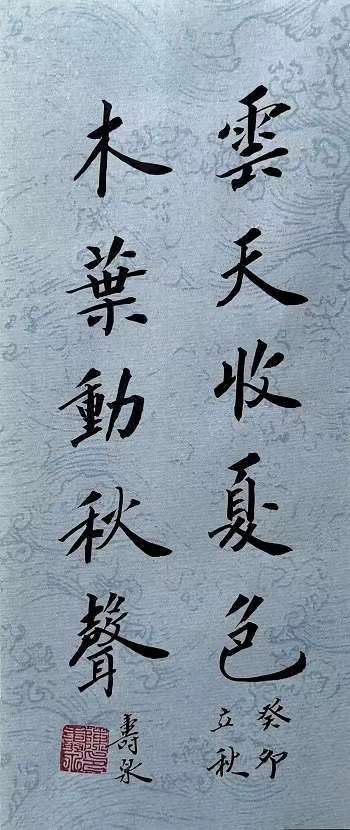 雲天收夏色
木葉動秋聲
癸卯
立秋
壽泉